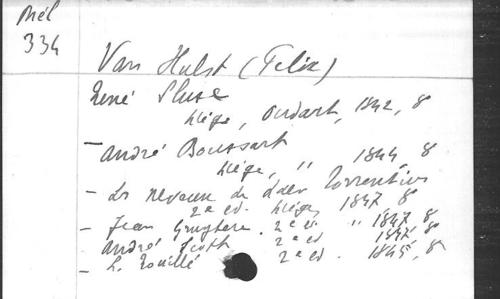 Mél
334
Van Hulst (Felix)
René Sluse
Liége, Oudart, 1842, 8
- André Boussart
Liége, " 1844, 8
- Les neveux de Laev. Torrentius
2a ed. Liége, 1847 8
- Jean Gruytere. 2a ed. " 1847 8
André Scott 2a ed 1847 8
- L. 2a ed. 1845, 8